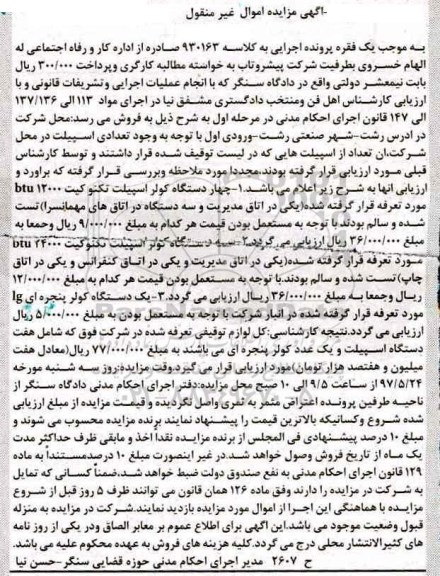 -آگهی مزایده اموال غیر منقول
به موجب یک فقره پرونده اجرایی به کلاسه ۹۳۰۱۶۳ صادره از اداره کار و رفاه اجتماعی له
الهام خسروی بطرفیت شرکت پیشروتاب به خواسته مطالبه کارگری وپرداخت ۳۰۰/۰۰۰ ریال
بابت نیمعشر دولتی واقع در دادگاه سنگر که با انجام عملیات اجرایی وتشریفات قانونی و با
ارزیابی کارشناس اهل فن ومنتخب دادگستری مشفق نیا در اجرای مواد ۱۱۳ الی ۱۳۷/۱۳۶
الی ۱۴۷ قانون اجرای احکام مدنی در مرحله اول به شرح ذیل به فروش می رسد:محل شرکت
در ادرس رشت-شهر صنعتی رشت-ورودی اول با توجه به وجود تعدادی اسپیلت در محل
شرکت،ان تعداد از اسپیلت هایی که در لیست توقیف شده قرار داشتند و توسط کارشناس
قبلی مورد ارزیابی قرار گرفته بودند،مجددا مورد ملاحظه وبررسی قرار گرفته که براورد و
ارزیابی انها به شرح زیر اعلام می باشد.۱-چهار دستگاه کولر اسپیلت تکنو کیت ۱۲۰۰۰ btu
مورد تعرفه قرار گرفته شده(یکی در اتاق مدیریت و سه دستگاه در اتاق های مهمانسرا) تست
شده و سالم بودند.با توجه به مستعمل بودن قیمت هر کدام به مبلغ ۹/۰۰۰/۰۰۰ ریال وجمعا به
مبلغ ۳۶/۰۰۰/۰۰۰ ریال ارزیابی می گردد.۲-سه دستگاه کولر اسپیلت تکنوکیت ۲۴۰۰۰ btu
مورد تعرفه قرار گرفته شده(یکی در اتاق مدیریت و یکی در اتاق کنفرانس و یکی در اتاق
چاپ)تست شده و سالم بودند.با توجه به مستعمل بودن قیمت هر کدام به مبلغ ۱۲/۰۰۰/۰۰۰
ریال وجمعا به مبلغ ۳۶/۰۰۰/۰۰۰ ریال ارزیابی می گردد.۳-یک دستگاه کولر پنجره ای lg
مورد تعرفه قرار گرفته شده در انبار شرکت با توجه به مستعمل بودن به مبلغ ۵/۰۰۰/۰۰۰ ریال
ارزیابی می گردد.نتیجه کارشناسی:کل لوازم توقیفی تعرفه شده در شرکت فوق که شامل هفت
دستگاه اسپیلت و یک عدد کولر پنجره ای می باشند به مبلغ ۷۷/۰۰۰/۰۰۰ ریال(معادل هفت
میلیون و هفتصد هزار تومان)مورد ارزیابی قرار می گیرد.وقت مزایده:روز سه شنبه مورخه
۹۷/۵/۲۳ از ساعت ۹/۵ الی ۱۰ صبح محل مزایده:دفتر اجرای احکام مدنی دادگاه سنگر از
ناحیه طرفین پرونده اعتراض مثمر به ثمری واصل نگردیده و قیمت مزایده از مبلغ ارزیابی
شده شروع وکسانیکه بالاترین قیمت را پیشنهاد نمایند برنده مزایده محسوب می شوند و
مبلغ ۱۰ درصد پیشنهادی فی المجلس از برنده مزایده نقدا اخذ و مابقی ظرف حداکثر مدت
یک ماه از تاریخ فروش وصول خواهد شد.در غیر اینصورت مبلغ ۱۰ درصدمستندآ به ماده
۱۲۹ قانون اجرای احکام مدنی به نفع صندوق دولت ضبط خواهد شد.ضمناً کسانی که تمایل
به شرکت در مزایده را دارند وفق ماده ۱۲۶ همان قانون می توانند ظرف ۵ روز قبل از شروع
مزایده با هماهنگی این اجرا از اموال مورد مزایده بازدید نمایند.شرکت در مزایده به منزله
قبول وضعیت موجود می باشد.این آگهی برای اطلاع عموم بر معابر الصاق ودر یکی از روز نامه
های کثیرالانتشار محلی درج می گردد.کلیه هزینه های فروش به عهده محکوم علیه می باشد.
ح ۲۶۰۷ مدیر اجرای احکام مدنی حوزه قضایی سنگر-حسن نیا